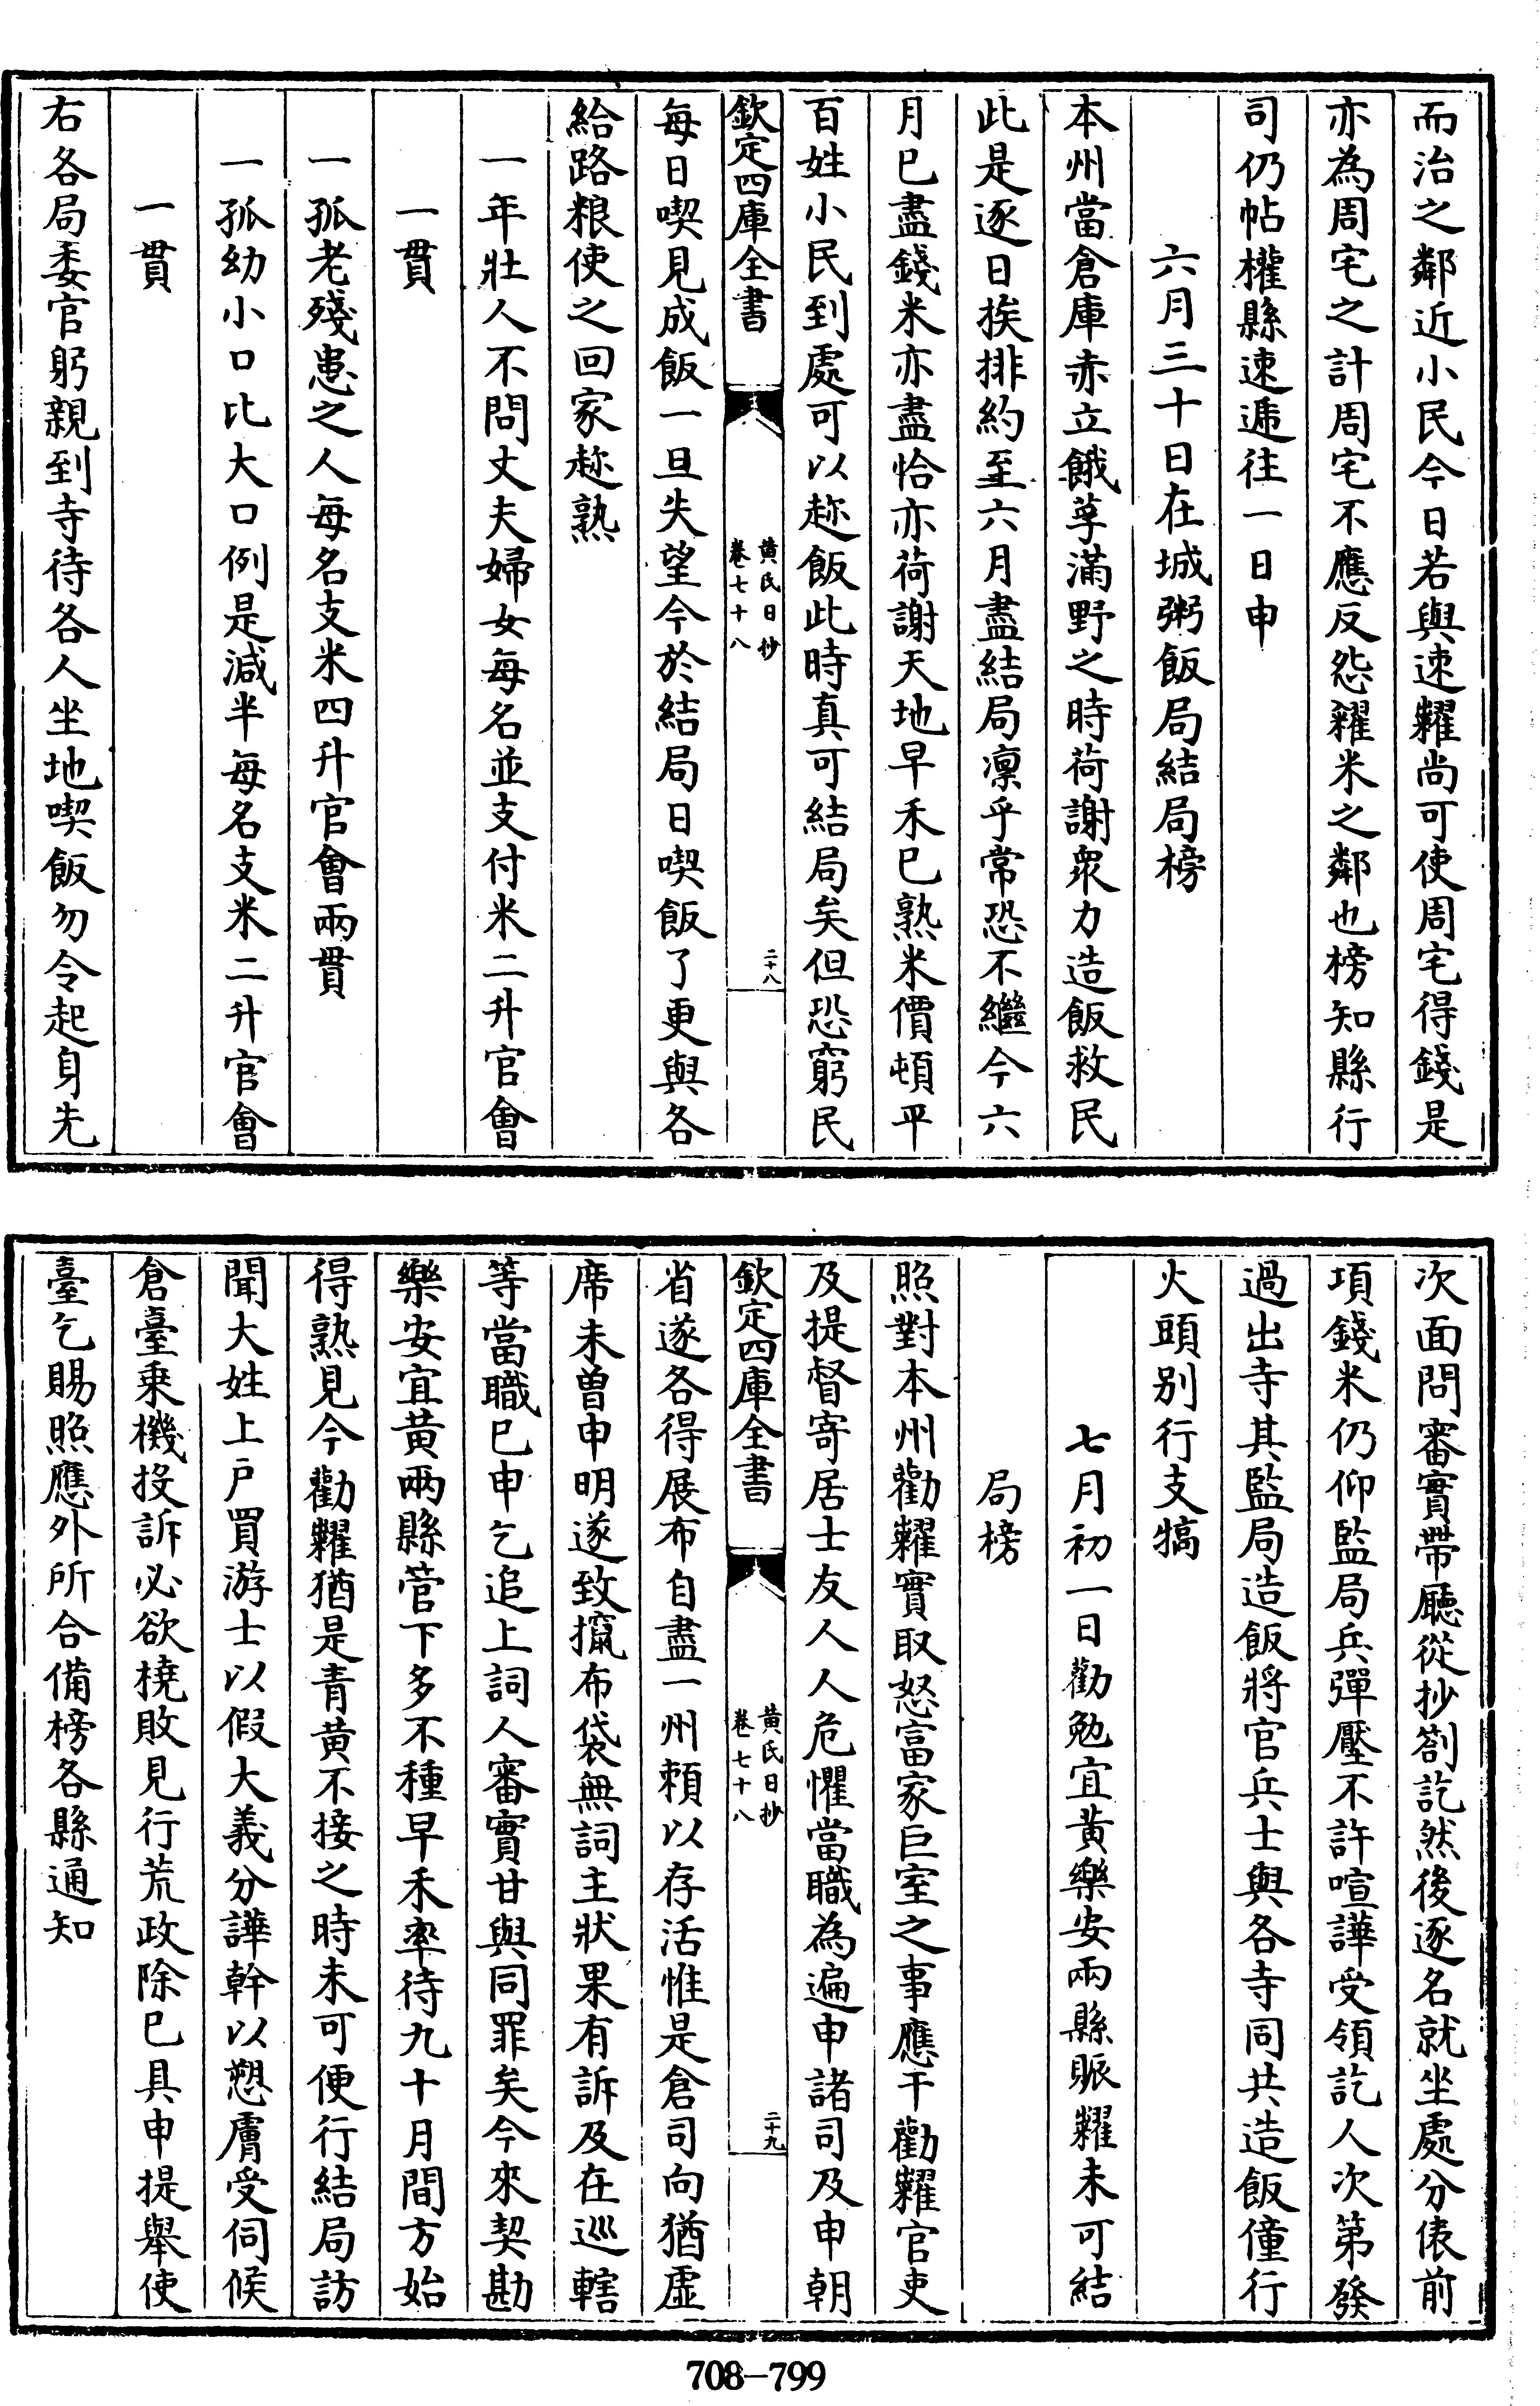 而治之鄰近小民今日若與速糶尚可使周宅得錢是
亦為周宅之計周宅不應反怨糴米之鄰也榜知縣行
司仍帖權縣速遞往一日申
六月三十日在城粥飯局結局榜
本州當倉庫赤立餓莩滿野之時荷謝衆力造飯救民
此是逐日挨排約至六月盡結局凛乎常恐不繼今六
月已盡錢米亦盡恰亦荷謝天地早禾已熟米價頓平
百姓小民到處可以趂飯此時真可結局矣但恐窮民
欽定四庫全書
黄氏日抄
卷七十八
二十八
每日喫見成飯一旦失望今於結局日喫飯了更與各
給路粮使之回家趂熟
一年壯人不問丈夫婦女每名並支付米二升官會
一貫
一孤老殘患之人每名支米四升官會兩貫
一孤幼小口比大口例是減半每名支米二升官會
一貫
右各局委官躬親到寺待各人坐地喫飯勿令起身先
次面問審實帶廳從抄劄訖然後逐名就坐處分俵前
項錢米仍仰監局兵彈壓不許喧譁受領訖人次第發
過出寺其監局造飯將官兵士與各寺同共造飯僮行
火頭别行支犒
七月初一日勸勉宜黄樂安兩縣賑糶未可結
局榜
照對本州勸糶實取怒富家巨室之事應干勸糶官吏
及提督寄居士友人人危懼當職為遍申諸司及申朝
欽定四庫全書
黄氏日抄
卷七十八
二十九
省遂各得展布自盡一州頼以存活惟是倉司向猶虚
席未曽申明遂致攛布袋無詞主狀果有訴及在巡轄
等當職已申乞追上詞人審實甘與同罪矣今來契勘
樂安宜黄兩縣管下多不種早禾率待九十月間方始
得熟見今勸糶猶是青黄不接之時未可便行結局訪
聞大姓上户買游士以假大義分譁幹以愬膚受伺候
倉臺乗機投訴必欲撓敗見行荒政除已具申提舉使
臺乞賜照應外所合備榜各縣通知
708-799